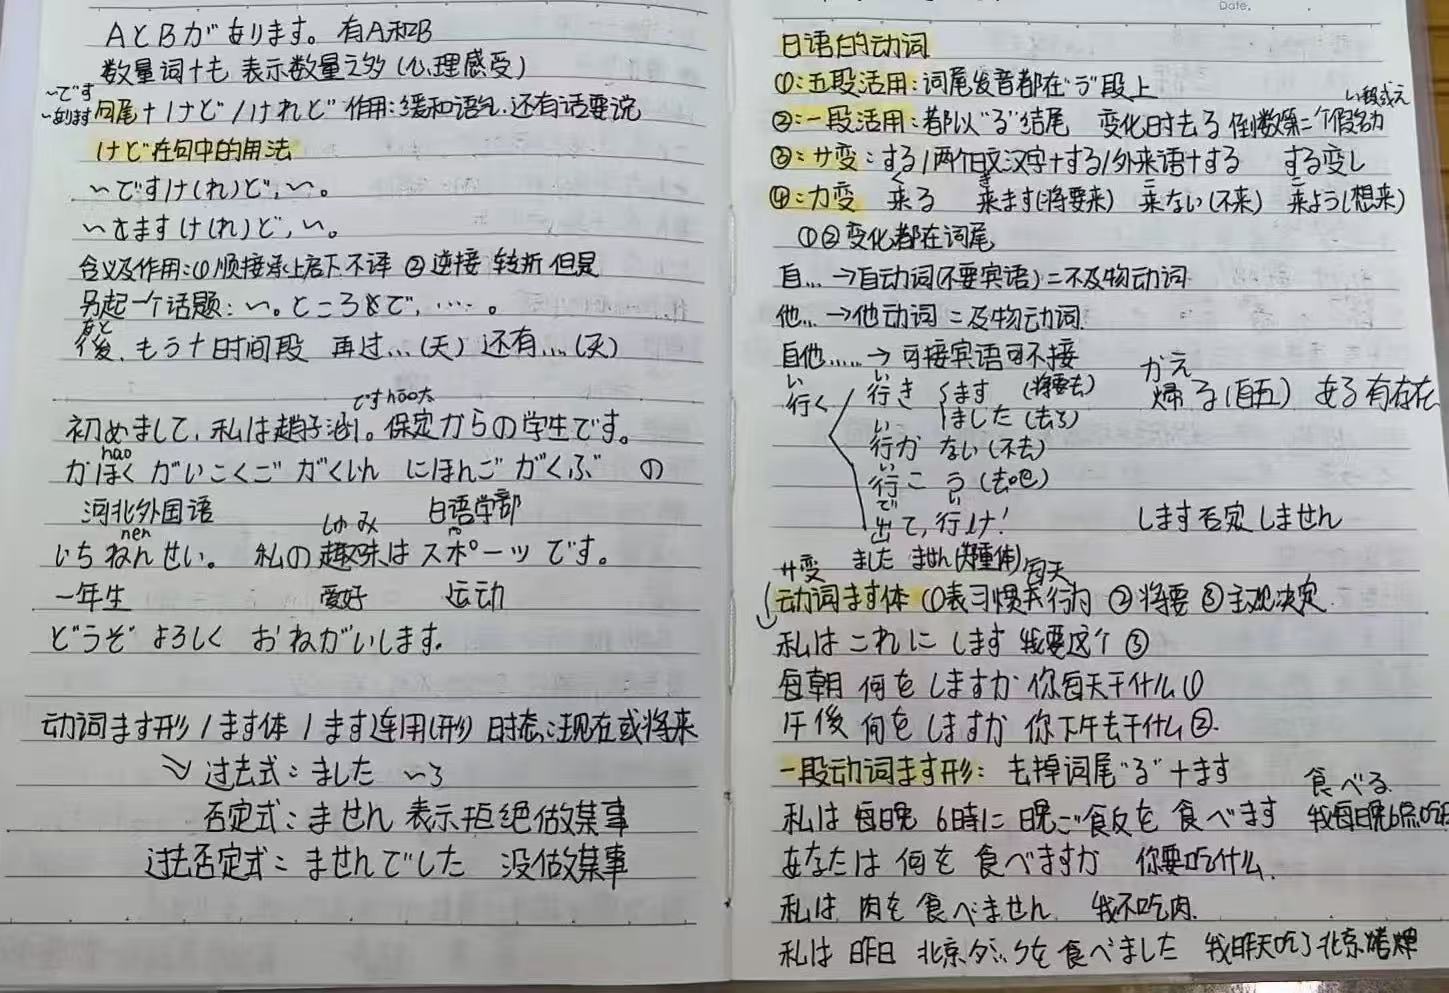 AとBがあります。有A和B
数量词+も 表示数量之多(心理感受)
〜です
句尾+けど/けれど 作用:缓和语气.还有话要说
けど在句中的用法
〜ですけ(れ)ど,〜。
〜ますけ(れ)ど,〜。
含义及作用:①顺接承上启下不译 ②逆接 转折 但是
另起一个话题:〜。ところで,……。
あと
後、もう+时间段 再过…(天) 还有…(天)
初めまして、私は趙子涵。保定からの学生です。
hao
かほく がいこくご がくいん にほんご がくぶ の
河北外国语 日语学部
nen しゅみ
いちねんせい。 私の趣味はスポーツです。
一年生 爱好 运动
どうぞ よろしく おねがいします.
动词ます形/ます体/ます连用(形) 时态:现在或将来
过去式:ました 〜了
否定式:ません 表示拒绝做某事
过去否定式:ませんでした 没做某事
Date.
日语的动词
①:五段活用:词尾发音都在"う"段上
い段或え
②:一段活用:都以"る"结尾 变化时去る 倒数第二个假名
③:サ变:する/两个日文汉字+する/外来语+する する变し
き こ こ
④:カ变 来る 来ます(将要来) 来ない(不来) 来よう(想来)
①②变化都在词尾
自…→自动词(不要宾语)=不及物动词
他…→他动词=及物动词.
自他……→可接宾语可不接
い い かえ
行く 行き ます (将要去) 帰る(自五) ある 有存在
ました (去了)
い
行か ない(不去)
い
行こ う(去吧)
で い
出て,行け! します否定しません
サ变 ました ません 每天
动词ます体 ①表习惯行为 ②将要 ③主观决定
私は これに します 我要这个 ③
每朝 何を しますか 你每天干什么①
午後 何を しますか 你下午去干什么②.
一段动词ます形:去掉词尾"る"+ます
食べる
私は 每日晚 6時に 晚ご飯を 食べます 我每日晚6点吃
あなたは 何を 食べますか 你要吃什么.
私は 肉を 食べません 我不吃肉.
私は 昨日 北京ダックを食べました 我昨天吃了北京烤